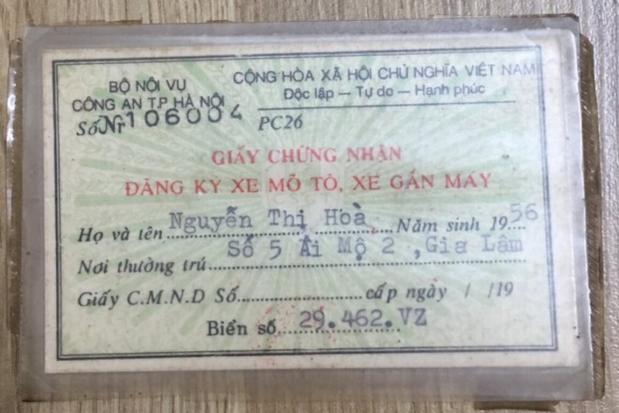 BỘ NỘI VỤ
CÔNG AN T.P HÀ NỘI
Số Nr 106004
CỘNG HÒA XÃ HỘI CHỦ NGHĨA VIỆT NAM
Độc lập — Tự do — Hạnh phúc
PC26
GIẤY CHỨNG NHẬN
ĐĂNG KÝ XE MÔ TÔ, XE GẮN MÁY
Họ và tên Nguyễn Thị Hoà Năm sinh 1956
Nơi thường trú Số 5 Ái Mộ 2 ,Gia Lâm
Giấy C.M.N.D Số cấp ngày / /19
Biển số 29.462.VZ